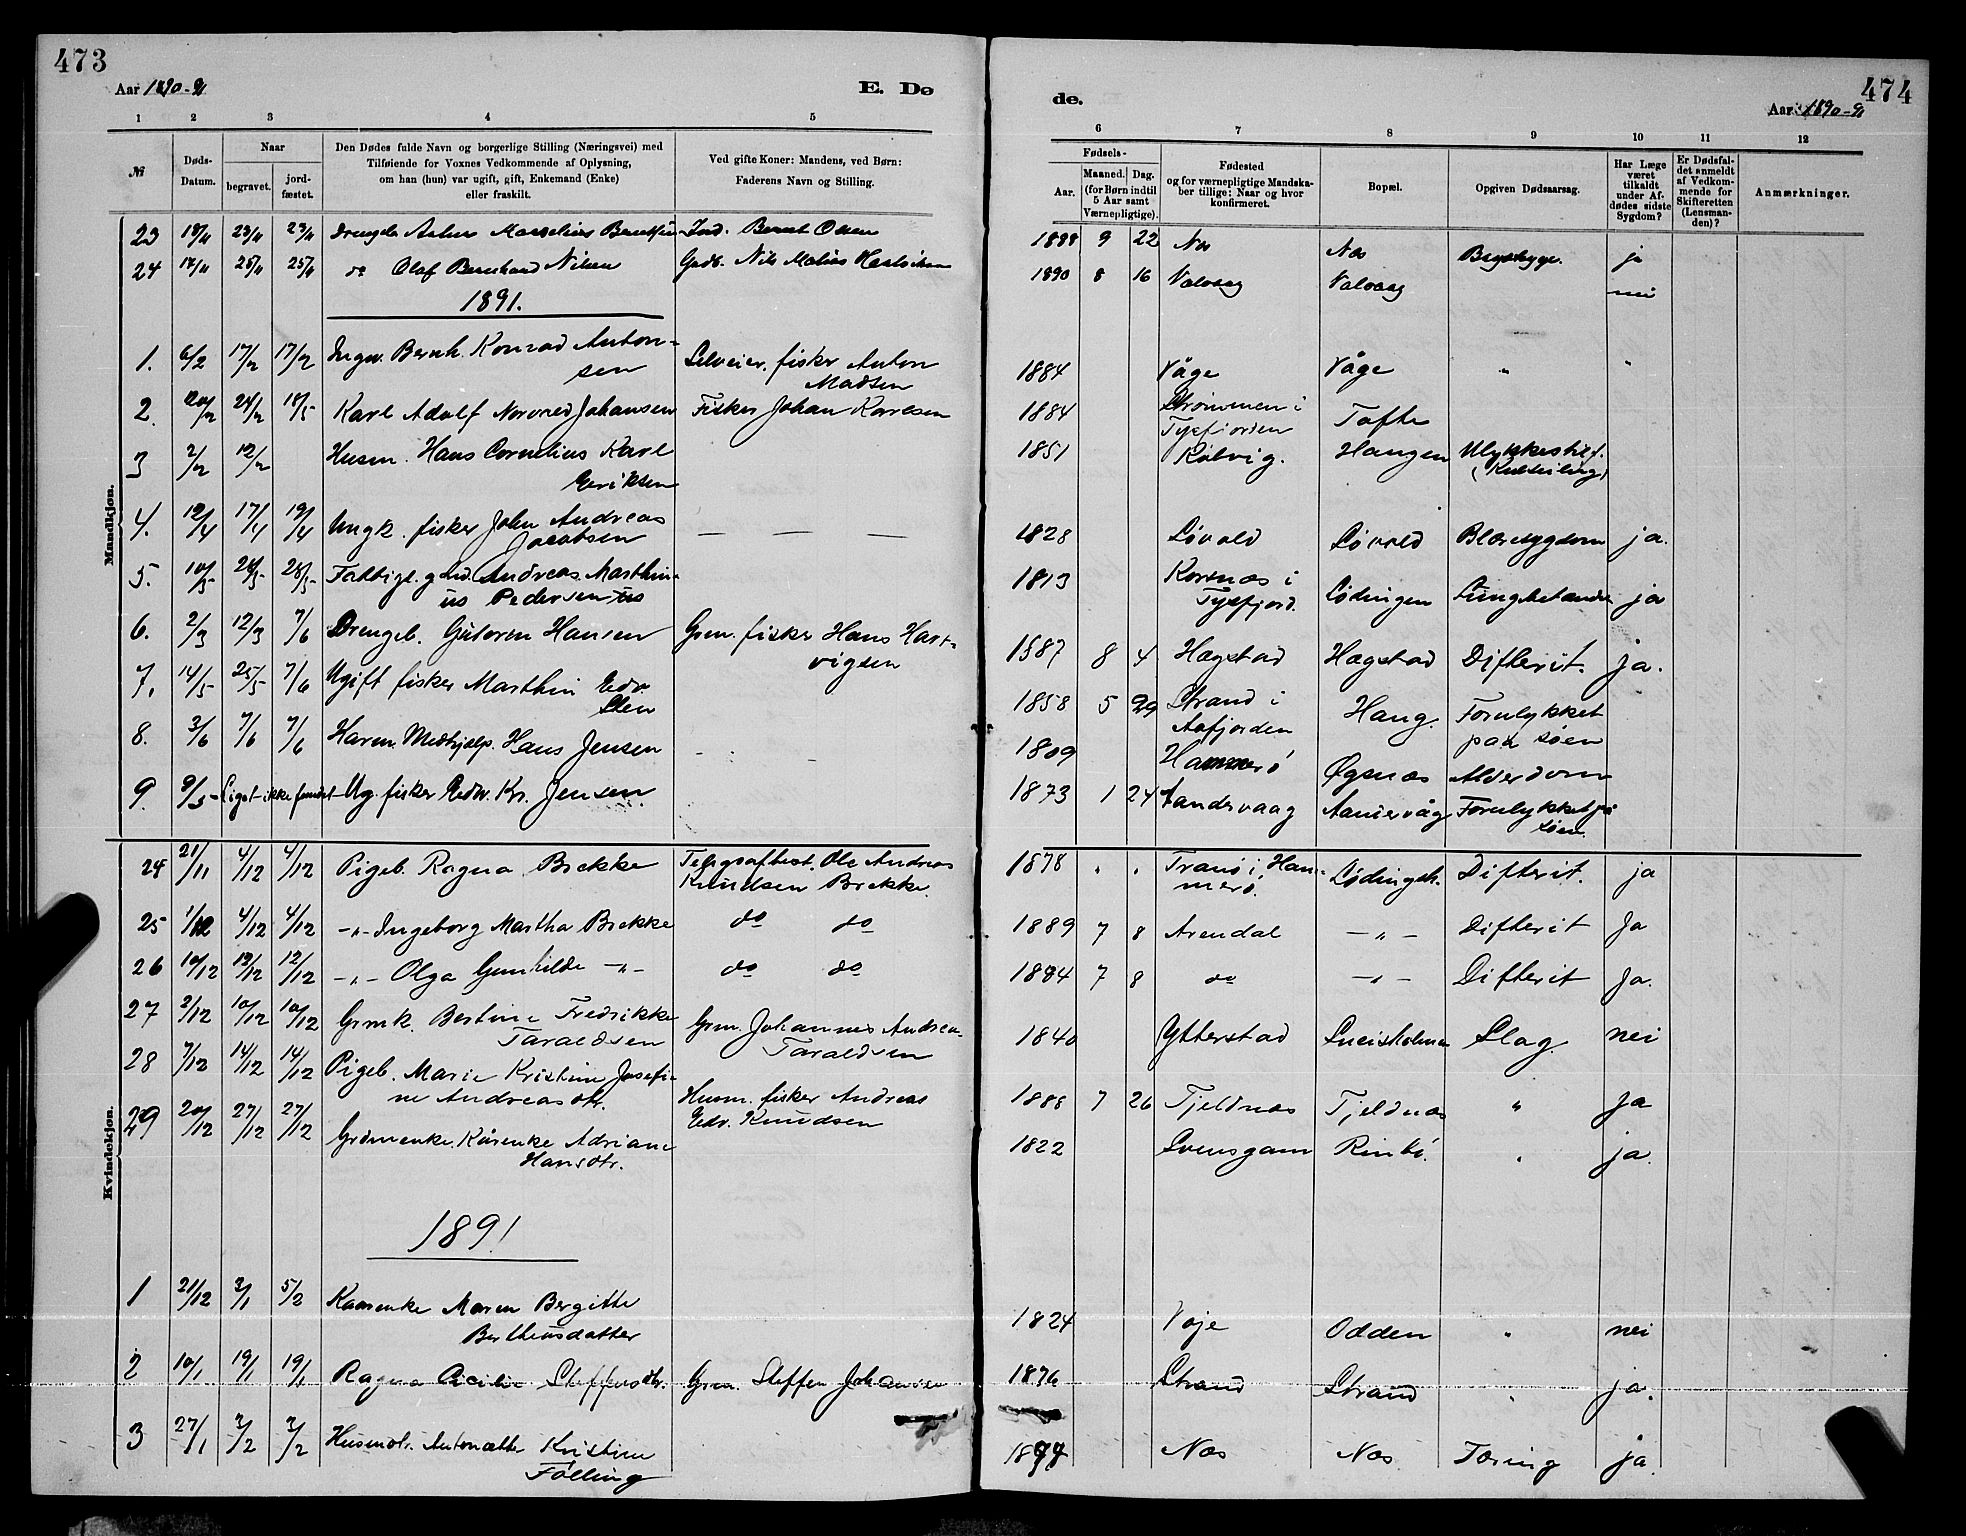 473
Aar 1890-91
E. Dø
1 2 3 4 5
№
Døds-
Datum.
Naar
begravet.
jord-
fæstet.
Den Dødes fulde Navn og borgerlige Stilling (Næringsvei) med
Tilføiende for Voxnes Vedkommende af Oplysning,
om han (hun) var ugift, gift, Enkemand (Enke)
eller fraskilt.
Ved gifte Koner: Mandens, ved Børn:
Faderens Navn og Stilling.
Mandkjøn.
23 18/11 23/11 23/11 Ind. Bernt Olsen
24 25/11 25/11 do Olaf Bernhard Nilsen Nils Matias
1891.
1. 6/2 17/2 17/2 Ingv. Bernh. Konrad Anton- Selveier. fisker Anton
sen Madsen
2. 20/2 24/2 18/5 Karl Adolf Johansen Fisker Johan Karlsen
3 2/2 12/2 Husm. Hans Cornelius Karl
Eriksen
4. 12/4 17/4 19/4 Ungk. fisker John Andreas — — —
Jacobsen
5. 10/5 28/5 28/5 Fattigl. Andreas Marthin-
us Pedersen
6. 2/3 12/3 7/6 Drengeb. Gutorm Hansen Grm. fisker Hans Hart-
vigsen
7. 14/5 25/5 7/6 Ugift fisker Marthin Edv.
8. 3/6 7/6 7/6 Medhjælp. Hans Jensen
9. 9/5 - Liget ikke fundet - Ug. fisker Edv. Kr. Jensen.
Kvindekjøn.
24 21/11 4/12 4/12 Pigeb. Ragna Brekke Ole Andreas
Knudsen Brekke.
25 1/12 4/12 4/12 -"- Ingeborg Martha Brekke do do
26 10/12 12/12 12/12 -"- Olga Gunhilde -"- do do
27 2/12 10/12 10/12 Grmk. Bertine Fredrikke Grm. Johannes Andrea
Taraldsen Taraldsen
28 7/12 14/12 14/12 Pigeb. Marie Kristine Josefi-
ne Andreasdtr. Husm. fisker Andreas
Edv. Knudsen
29 20/12 27/12 27/12 Kårenke Adriane
Hansdtr.
1891
1 21/12 3/1 5/2 Kaarenke Maren Bergitte
Bertheusdatter
2 10/1 19/1 19/1 Ragna Cicilie Steffensdtr. Grm. Steffen Johansen
3 27/1 3/2 3/2 Husmdtr. Antonette Kristine
Følling
474
de.
Aar 1890-91
6 7 8 9 10 11 12
Fødsels-
Aar.
Maaned. Dag.
(for Børn indtil
5 Aar samt
Værnepligtige).
Fødested
og for værnepligtige Mandska-
ber tillige: Naar og hvor
konfirmeret.
Bopæl.
Opgiven Dødsaarsag.
Har Læge
været
tilkaldt
under Af-
dødes sidste
Sygdom?
Er Dødsfal-
det anmeldt
af Vedkom-
mende for
Skifteretten
(Lensman-
den)?
Anmærkninger.
1888 9 22 Nes Nes Brystsyge. ja
1890 8 16 Valvaag Valvaag nei
1884 Våge Våge " "
1884 Strømmen i Tofte
Tysfjorden
1851 Kolvig. Haugen Ulykkestilf.
(Kulseiling)
1828 Løvold Løvold Blæresygdom ja.
1813 Korsnes i
Tysfjord. Lødingen ja
1887 8 4 Hægstad Hægstad Difterit. ja.
1858 5 29 Strand i Haug. Forulykket
paa søen
1809 Hammerø Øgsnes Alderdom
1873 1 24 Sandsvaag Forulykket på
søen
1878 " " Tranø i Ham-
merø. Difterit. ja
1889 7 8 Arendal -"- Difterit Ja
1884 7 8 do -"- Difterit Ja.
1840 Ytterstad Slag. nei
1888 7 26 Tjeldnes Tjeldnes " Ja
1822 Svensgam Rinbø. " ja.
1824 Voje Odden " nei
1876 Strand Strand " ja.
Nes Nes Tæring ja.